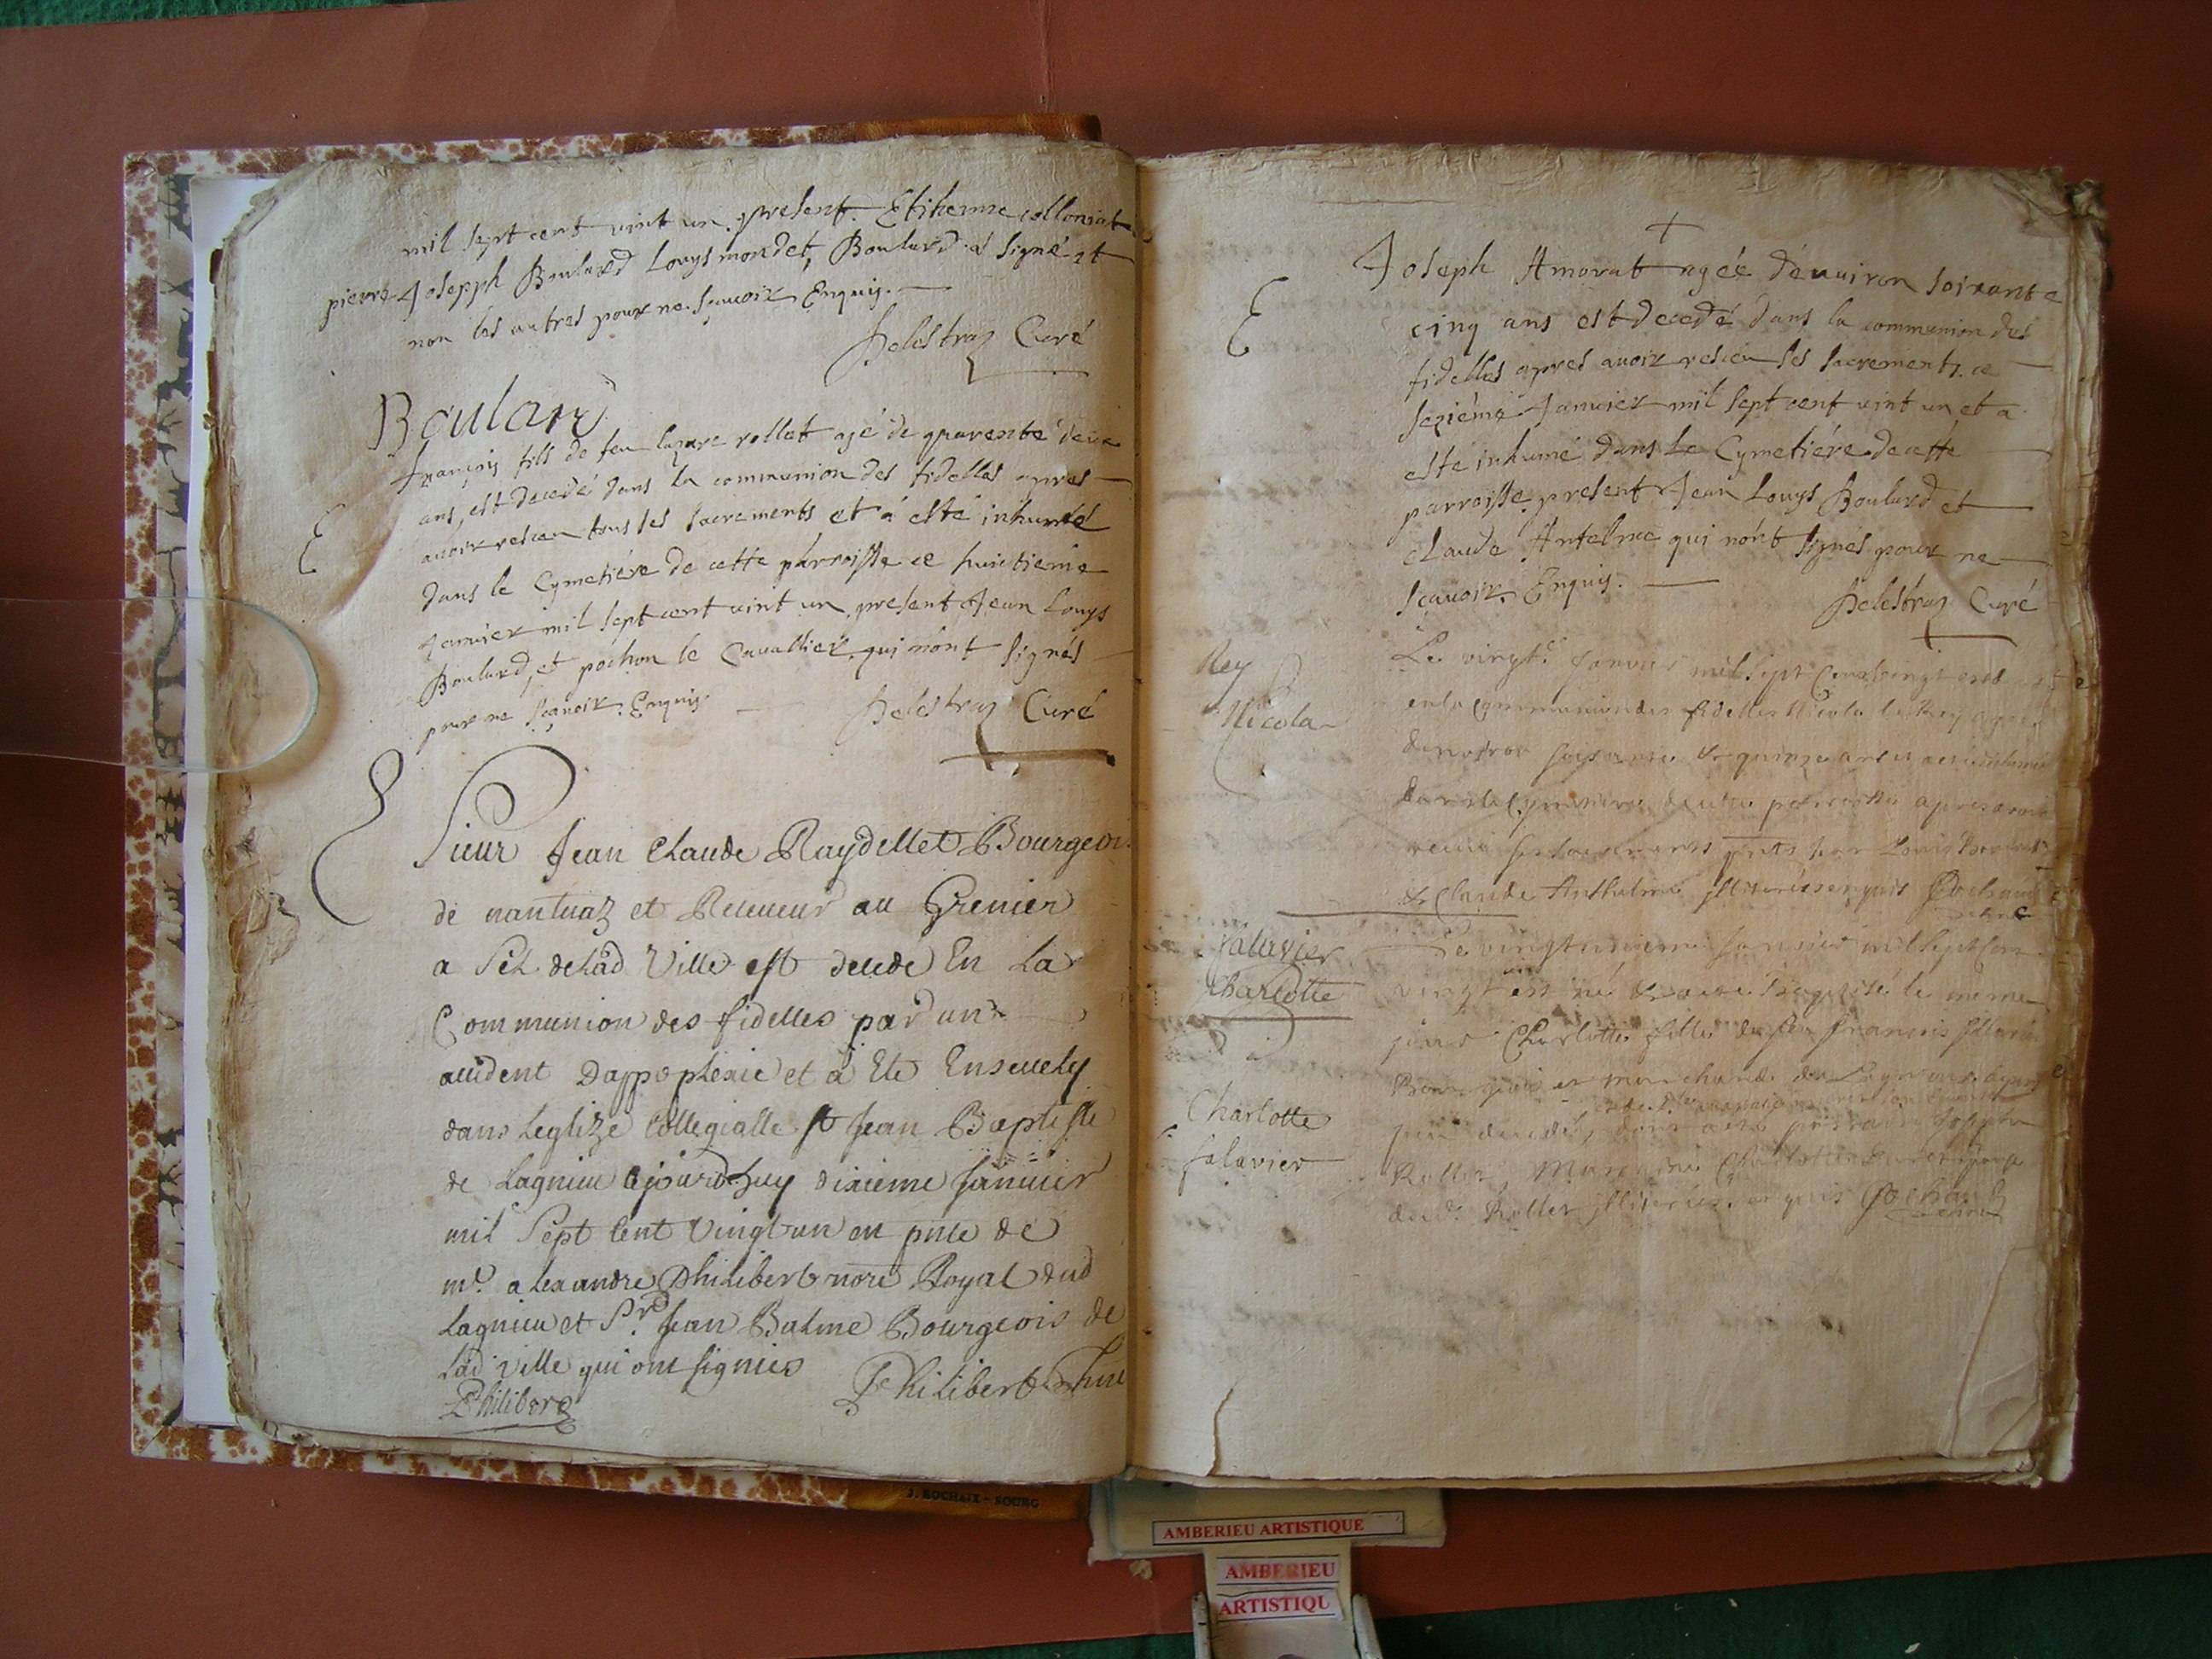 mil sept cent vint un present Etihenne colloniat
pierre Josepph Boulard Louys mondet, Boulard a signé et
non les autres pour ne scauoir Enquis.
Delestraz Curé
Boulard
françois fils de feu lazare rollet agé de quarente deux
ans, est decedé dans la communion des fidelles apres
auoir resceu tous les sacrements et á esté inhumé
dans le Cymetiére de cette parroisse ce huictieme
Januier mil sept cent vint un present Jean Louys
Boulard, et pochon le Cauallier qui nónt signés
pour ne sçauoir Enquis.
Delestraz Curé
Sieur Jean Claude Raydellet Bourgeois
de nantuaz et Receueur au Grenier
a Sel de lad Ville est decedé En La
Communion des fidelles par un
accident Dappoplexie et à Eté Enseuely
dans Leglize Collegialle St Jean Baptiste
de Lagnieu ajourdhuy dixieme Januier
mil Sept Cent Vingt un en pnte de
mr. alexandre Philibert nore Royal dud
Lagnieu et Sr. Jean Balme Bourgeois de
Lad ville qui ont signies
Philibert
Philibert
Joseph Amorat agéé dénuiron soixante
cinq ans est decedé dans la communion des
fidelles apres auoir resceu les sacrements ce
seziéme Januier mil sept cent vint un et a
esté inhumé dans Le Cymetiére de cette
parroisse present Jean Louys Boulard et
claude Antelme qui nónt signés pour ne
sçauoir Enquis.
Delestraz Curé
Rey
Nicola
Le vingte Janvier mil sept Cent vingt
en la Communion des fidelles Nicola
soisante & quinze ans
dans le Cymetiere parroisse apres avoir
receu sacrements pnts Louis Boulard
& Claude Anthelme illiterés enquis
falavier
Charlotte
Le vingtunieme Janvier mil sept cent
vingt un né & Baptisé le meme
jour Charlotte fille de feu francois
Bourgeois et marchand de
parrain Joseph
Rollet, Maraine Charlotte
dud. Rollet illiterés enquis
Charlotte
falavier
J. ROCHAIX - BOURG
AMBERIEU ARTISTIQUE
AMBERIEU
ARTISTIQU